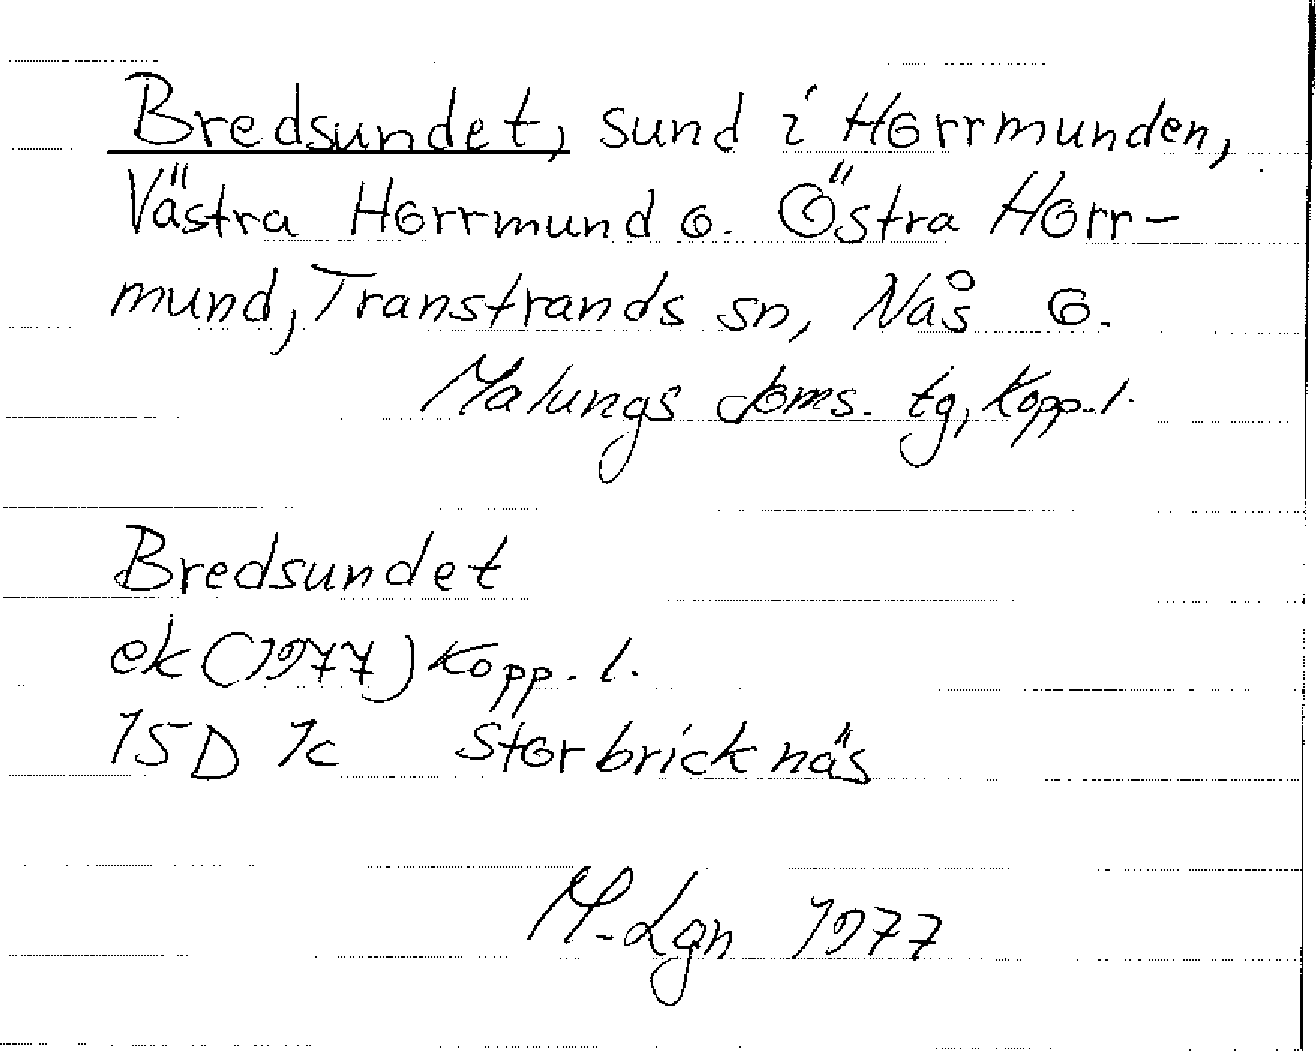 Bredsundet, sund i Horrmunden,
Västra Horrmund o. Östra Horr-
mund, Transtrands sn, Nås o.
Malungs doms. tg, Kopp. l.
Bredsundet
ek (1977) Kopp. l.
15D 1c Storbricknäs
M-Lgn 1977